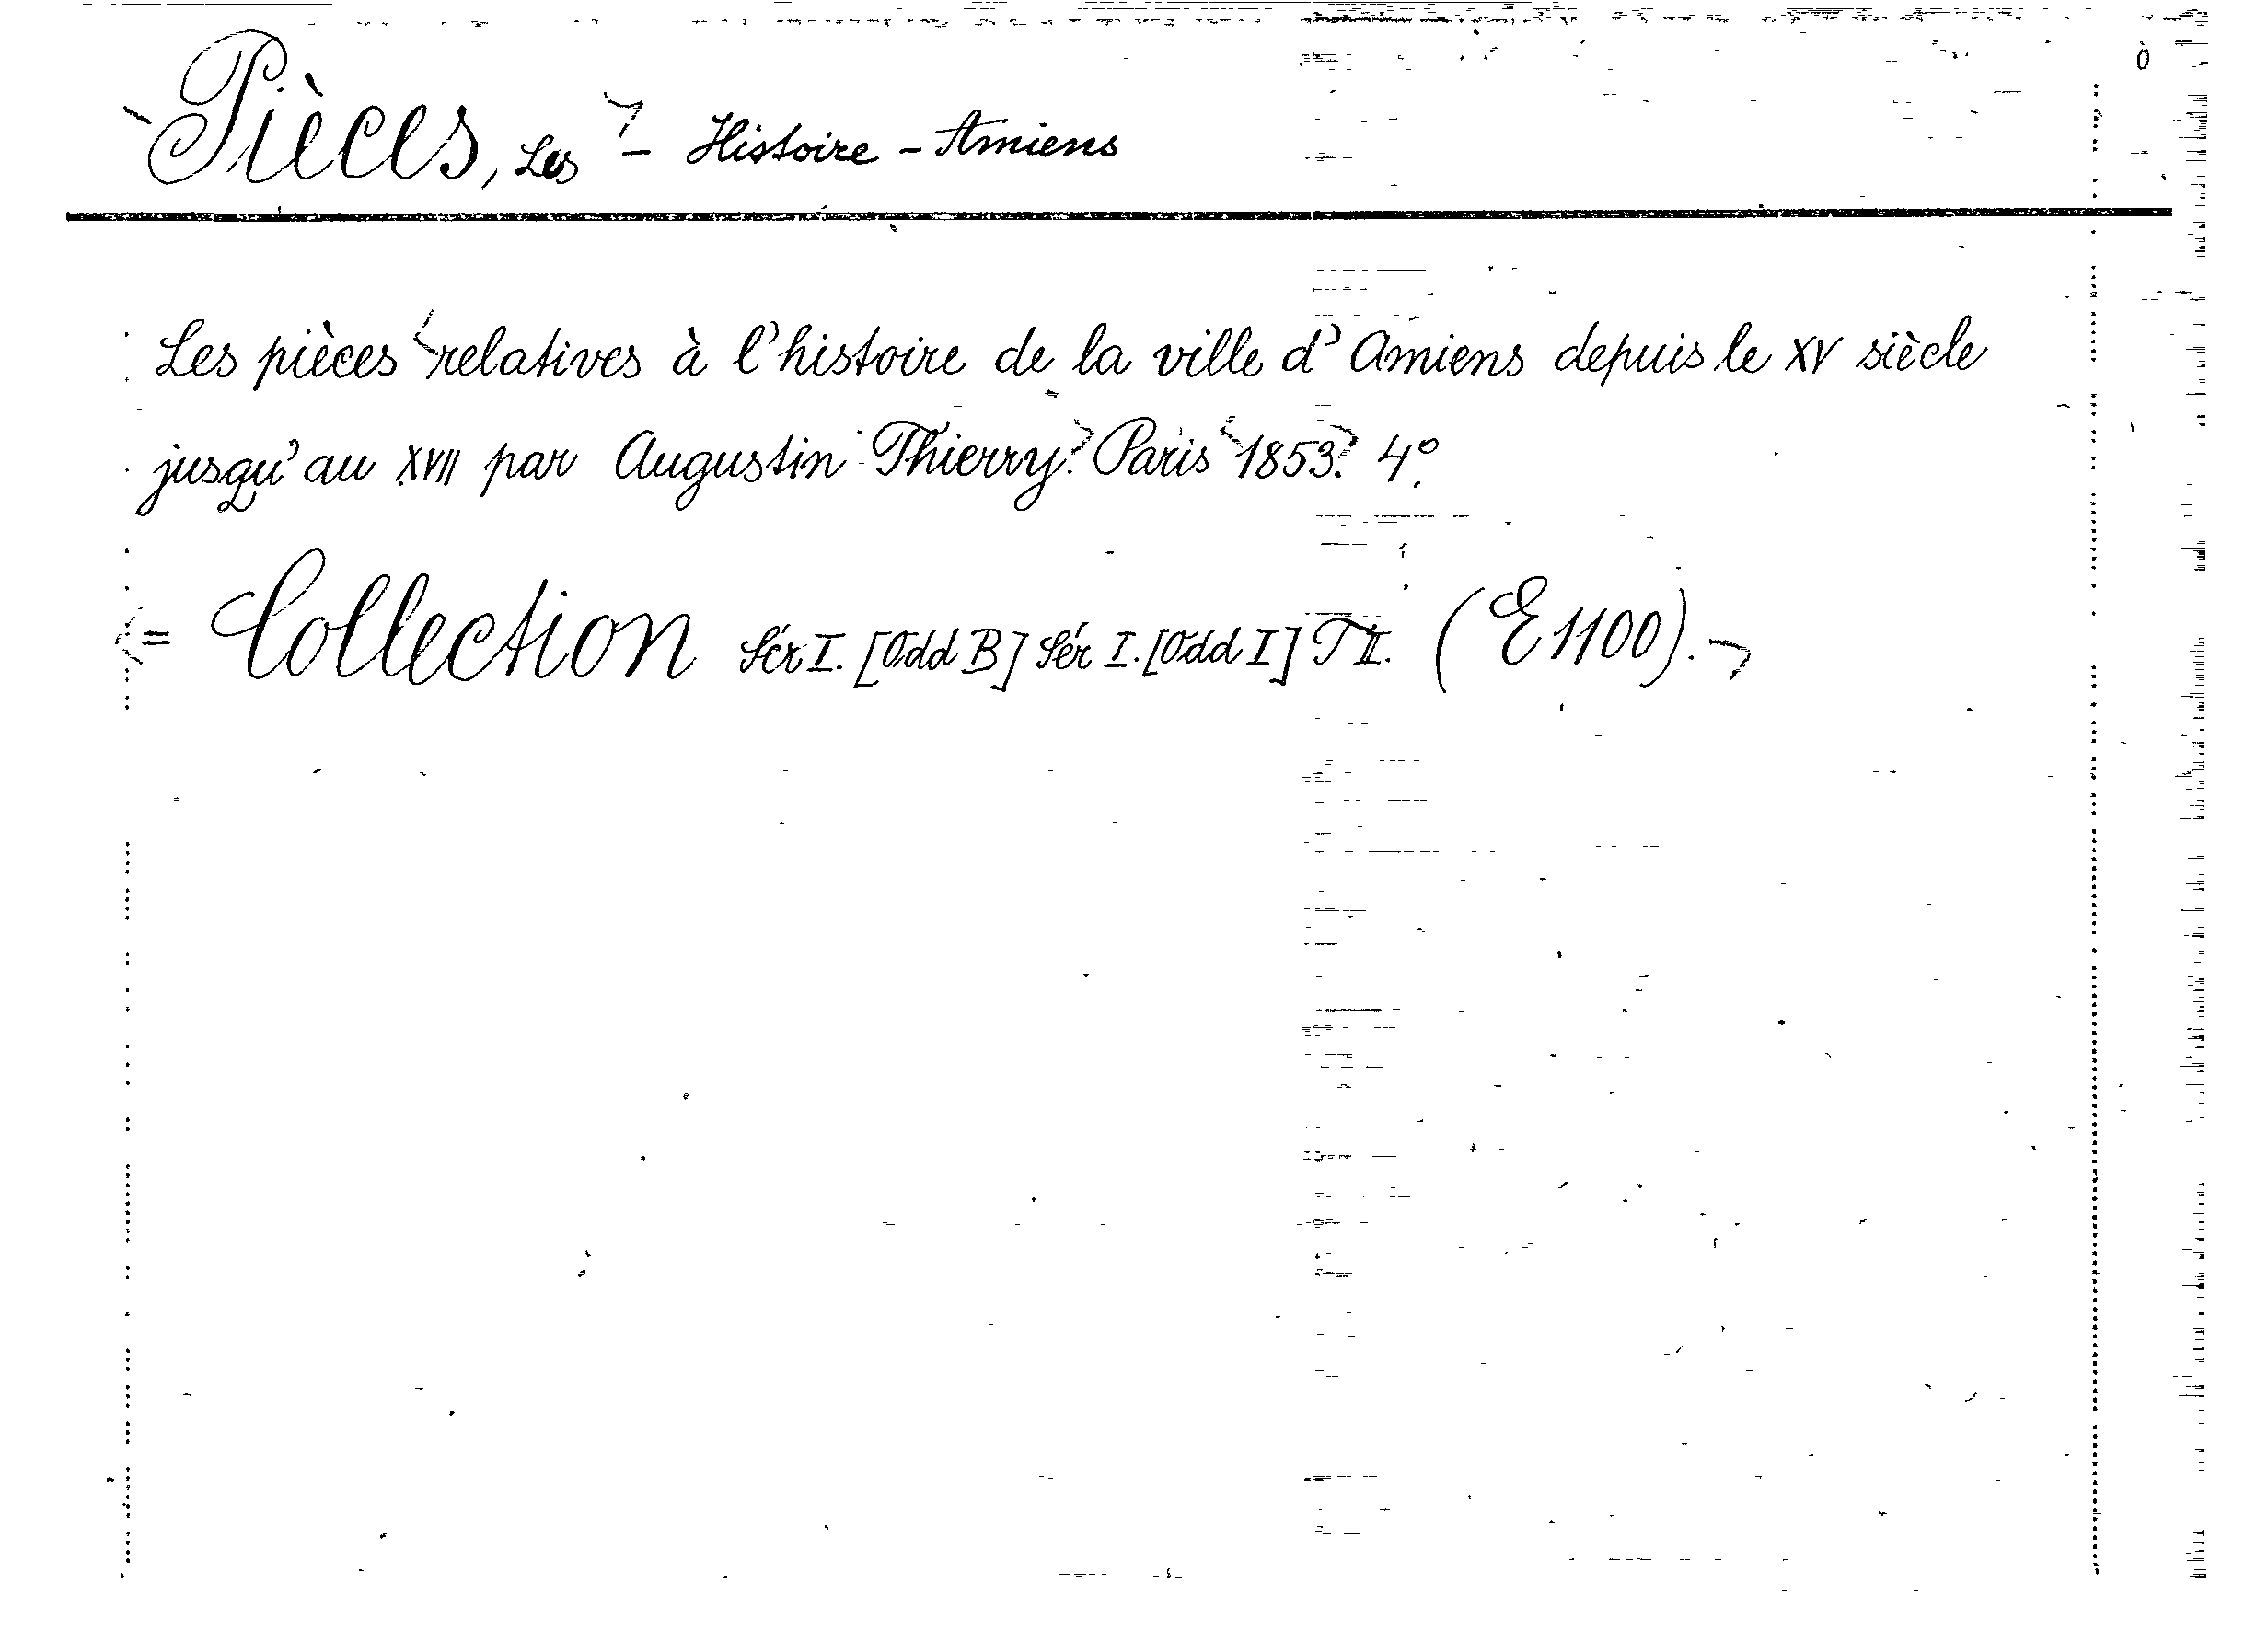 Pièces, Les - Histoire - Amiens
Les pièces relatives à l'histoire de la ville d'Amiens depuis le XV siècle
jusqu'au XVII par Augustin Thierry. Paris 1853. 4°.
= Collection Sér I. [Odd B] Sér I. [Odd I] T II. (E 1100).